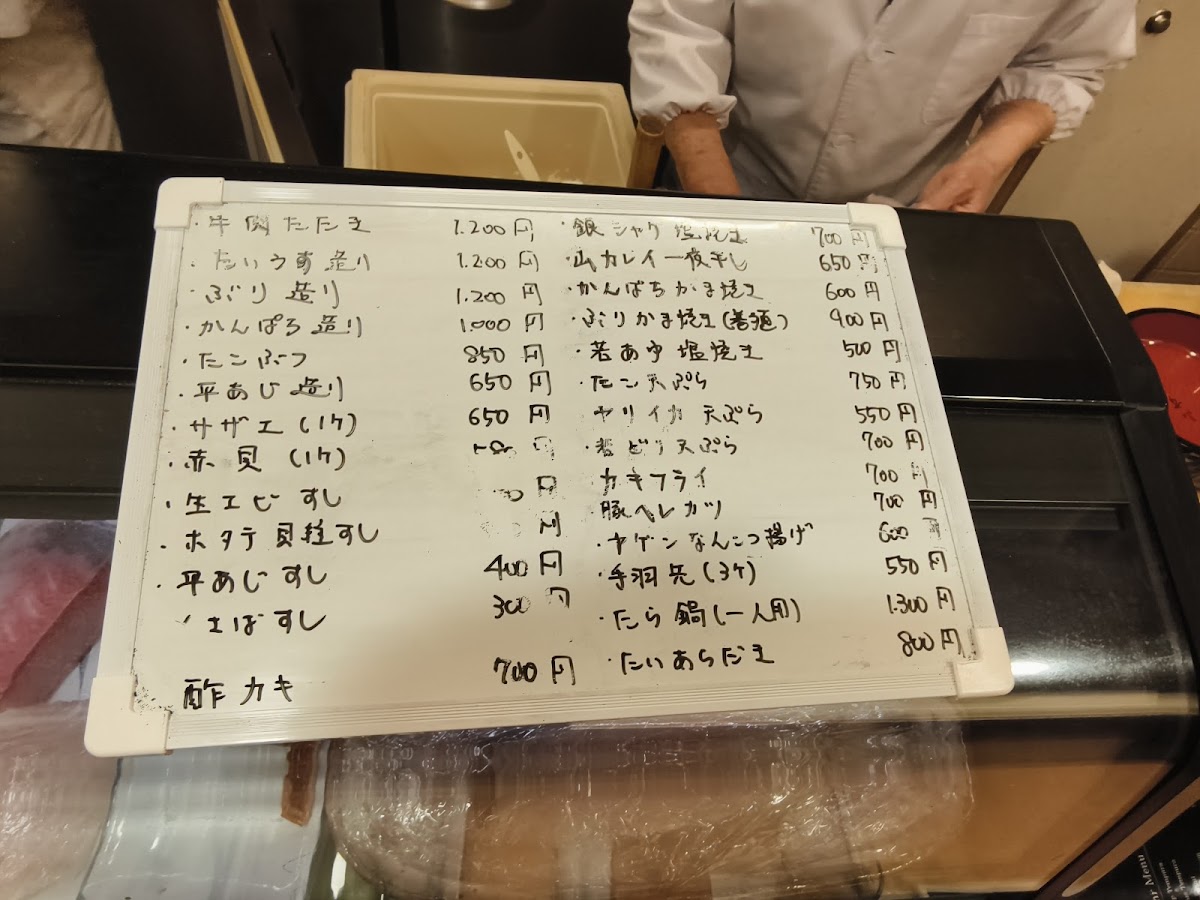 ・牛肉たたき 1.200円
・たいうす造り 1.200円
・ぶり造り 1.200円
・かんぱち造り 1.000円
・たこぶつ 850円
・平あじ造り 650円
・サザエ(1ケ) 650円
・赤貝(1ケ) 円
・生エビすし 円
・ホタテ貝柱すし 円
・平あじすし 400円
きばすし 300円
酢カキ 700円
・銀シャケ塩焼き 700円
・山カレイ一夜干し 650円
・かんぱちかま焼き 600円
・ぶりかま焼き( ) 900円
・若あゆ塩焼き 500円
・たこ天ぷら 750円
・ヤリイカ天ぷら 550円
・若どり天ぷら 700円
カキフライ 700円
豚ヘレカツ 700円
・ヤゲンなんこつ揚げ 600円
・手羽先(3ケ) 550円
・たら鍋(一人用) 1.300円
・たいあらだき 800円